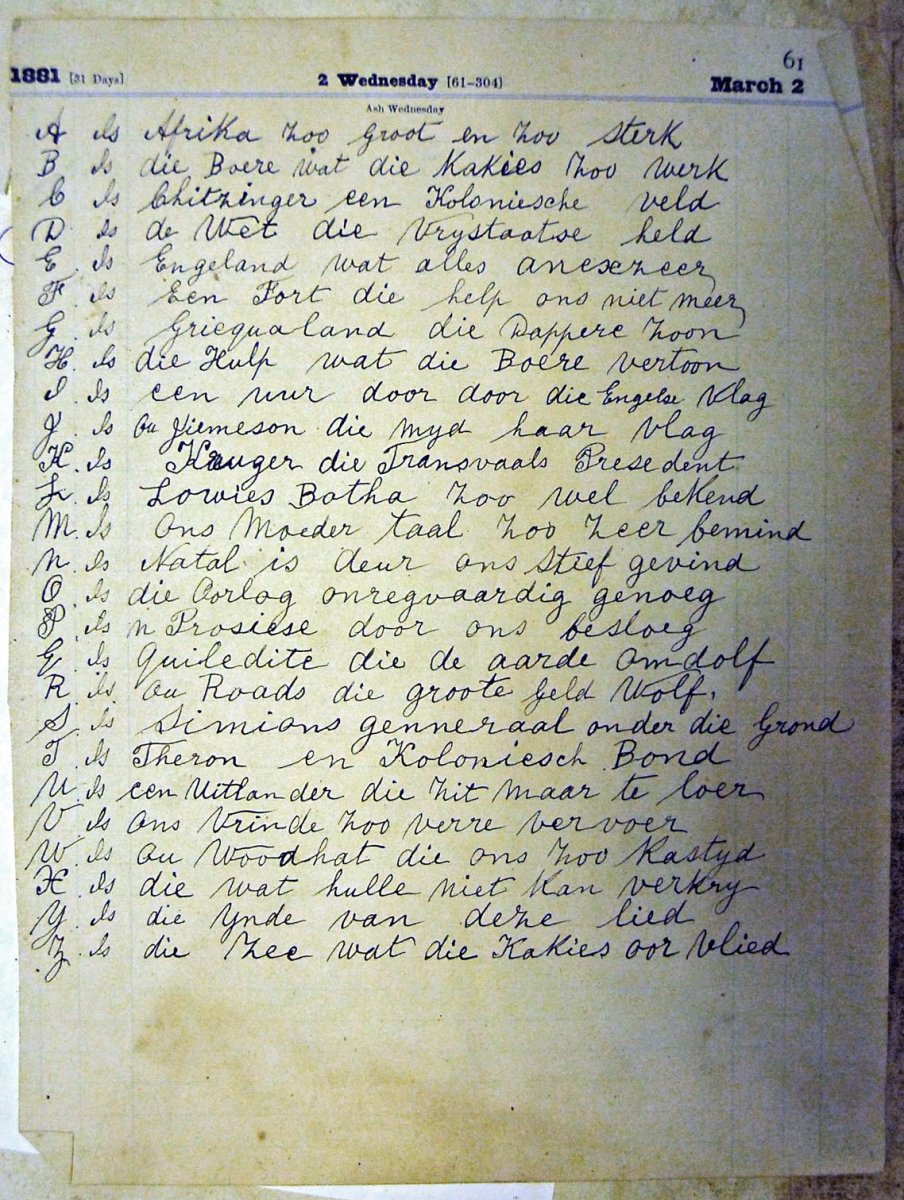 61
1881 [31 Days] 2 Wednesday [61-304] March 2
Ash Wednesday
A is Afrika zoo groot en zoo sterk
B is die Boere wat die Kakies zoo werk
C is Chitzinger een Koloniesche veld
D is de Wet die Vrystaatse held
E is Engeland wat alles anexzeer
F is Een Fort die help ons niet meer
G is Griequaland die Dappere zoon
H. is die Hulp wat die Boere vertoon
I is een uur door door die Engelse vlag
J. is ou Jiemeson die myd haar vlag
K. is Kruger die Transvaals Presedent
L. is Lowies Botha zoo wel bekend
M. is Ons Moeder taal zoo zeer bemind
N. is Natal is deur ons stief gevind
O. is die Oorlog onregvaardig genoeg
P. is n Prosiese door ons besloeg
Q. is Quiledite die de aarde omdolf
R is ou Roads die groote geld Wolf.
S. is Simions genneraal onder die Grond
T. is Theron en Koloniesch Bond
U. is een Uitlander die zit maar te loer
V is Ons Vrinde zoo verre vervoer
W. is ou Woodhat die ons zoo Kastyd
X. is die wat hulle niet kan verkry
Y. is die Ynde van deze lied
Z. is die Zee wat die Kakies oor vlied